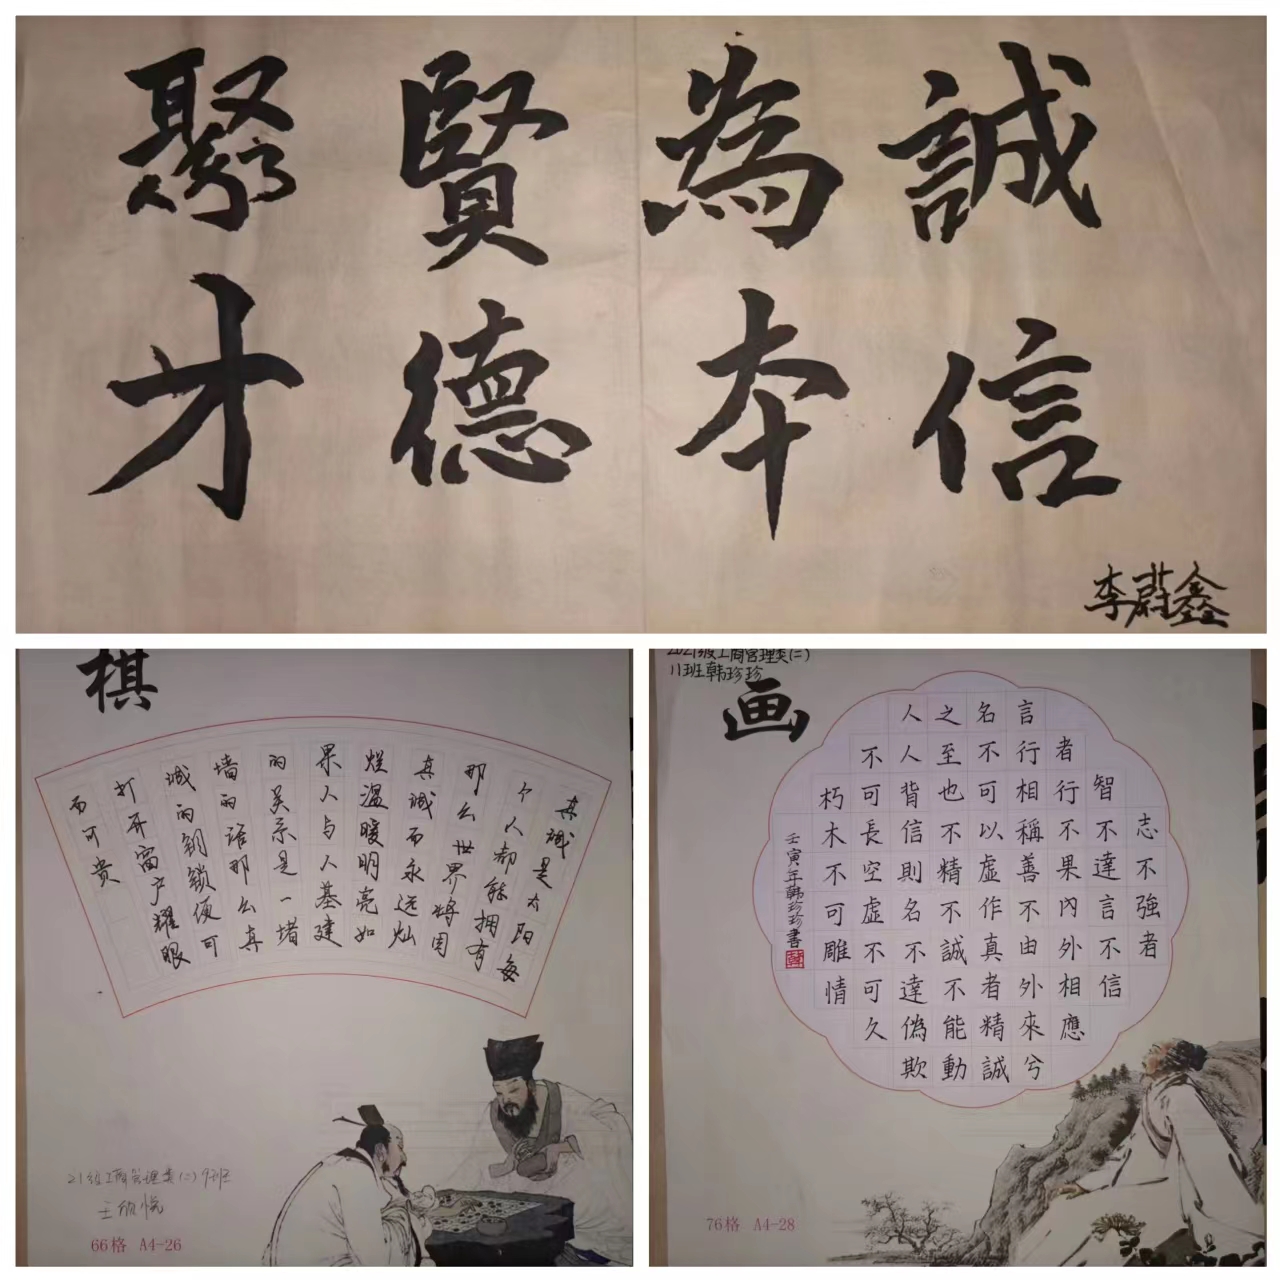 誠信
為本
賢德
聚才
李蔚鑫
棋
真诚是太阳每
个人却能拥有
那么世界将因
真诚而永远灿
烂温暖明亮如
果人与人基建
的关系是一堵
墙的话那么真
诚的钥锁便可
打开窗户耀眼
而可贵
21级工商管理类(二)9班
王欣悦
66格 A4-26
2021级工商管理类(二)
11班韩珍珍
画
志不強者
智不達言不信
者行不果內外相應
言行相稱善不由外來兮
名不可以虛作真者精誠
之至也不精不誠不能動
人人背信則名不達偽欺
不可長空虛不可久
朽木不可雕情
壬寅年韩珍珍書
76格 A4-28